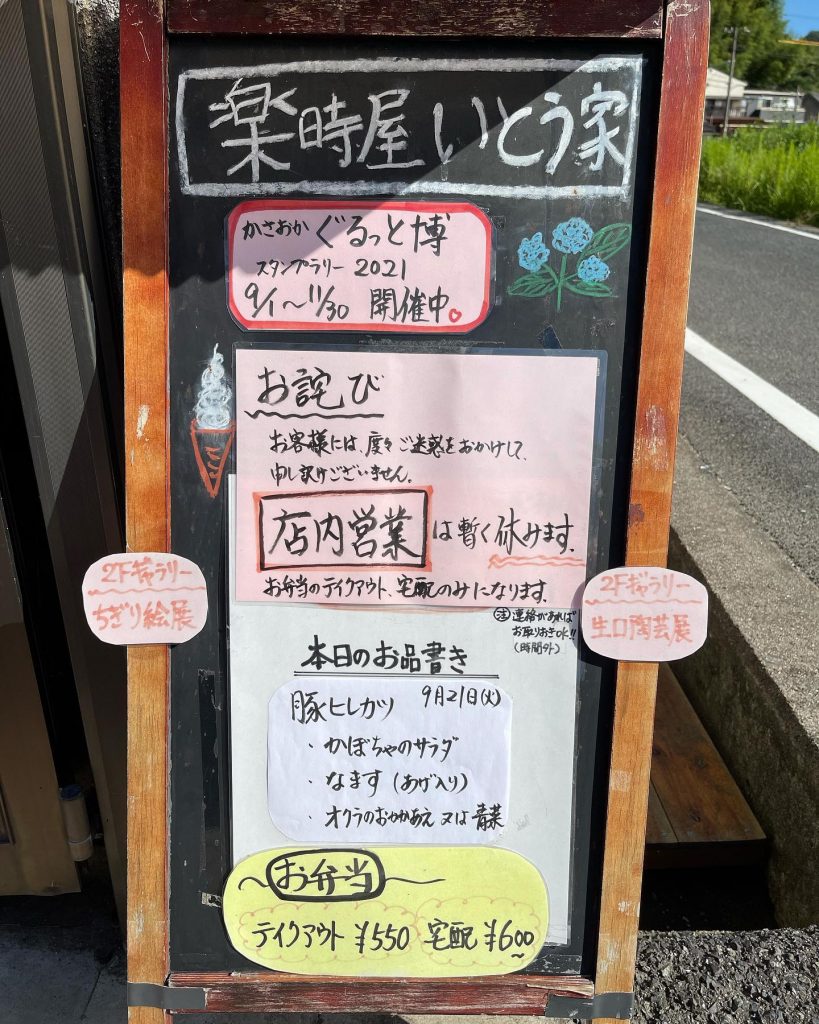 楽時屋いとう家
かさおか ぐるっと博
スタンプラリー 2021
9/1〜11/30 開催中。
お詫び
お客様には、度々ご迷惑をおかけして、
申し訳ございません。
店内営業は暫く休みます。
お弁当のテイクアウト、宅配のみになります。
注 連絡があれば
お取りおきok!!
(時間外)
2Fギャラリー
ちぎり絵展
2Fギャラリー
生口陶芸展
本日のお品書き
9月21日(火)
豚ヒレカツ
・かぼちゃのサラダ
・なます(あげ入り)
・オクラのおかかあえ 又は 青菜
〜お弁当〜
テイクアウト ¥550 宅配 ¥600〜